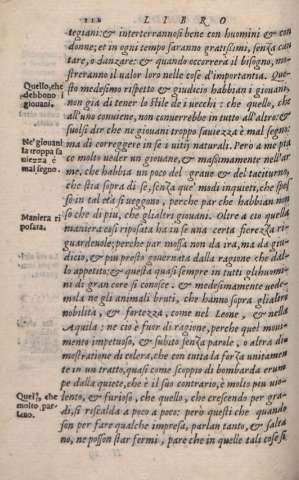 112 LIBRO
tegiani: & interterrannosi bene con huomini & con
donne; et in ogni tempo saranno gratissimi, senza can
tare, o danzare: & quando occorrerà il bisogno, mo-
streranno il valor loro nelle cose d'importantia. Que-
Quello, che
debbono i
giouani.
sto medesimo rispetto & giudicio habbian i giouani,
non già di tener lo stile de i uecchi: che quello, che
all'uno conuiene, non conuerrebbe in tutto all'altro: &
suolsi dir che ne giouani troppo sauiezza è mal segno:
Ne' giouani
la troppa sa
uiezza è
mal segno.
ma di correggere in se i uitij naturali. Però a me pia
ce molto ueder un giouane, & massimamente nell'ar
me, che habbia un poco del graue & del taciturno,
che stia sopra di se, senza que' modi inquieti, che spes
so in tal età si ueggono, perche par che habbian non
so che di più, che gli altri giouani. Oltre a ciò quella
Maniera ri
posata.
maniera così riposata ha in se una certa fierezza ri-
guardeuole; perche par mossa non da ira, ma da giu-
dicio, & più presto gouernata dalla ragione che dal-
lo appetito: & questa quasi sempre in tutti gli huomi-
ni di gran core si conosce. & medesimamente uede-
mola ne gli animali bruti, che hanno sopra gli altri
nobilità, & fortezza, come nel Leone, & nella
Aquila: ne ciò è fuor di ragione, perche quel moui-
mento impetuoso, & subito senza parole, o altra di
mostratione di colera, che con tutta la forza unitamen
te in un tratto, quasi come scoppio di bombarda erum
pe dalla quiete, che è il suo contrario, è molto piu uio-
lento, & furioso, che quello, che crescendo per gra-
Quei, che
molto par-
lano.
di, si riscalda a poco a poco: però questi che quando
son per fare qualche impresa, parlan tanto, & salta
no, ne posson star fermi, pare che in quelle tali cose si